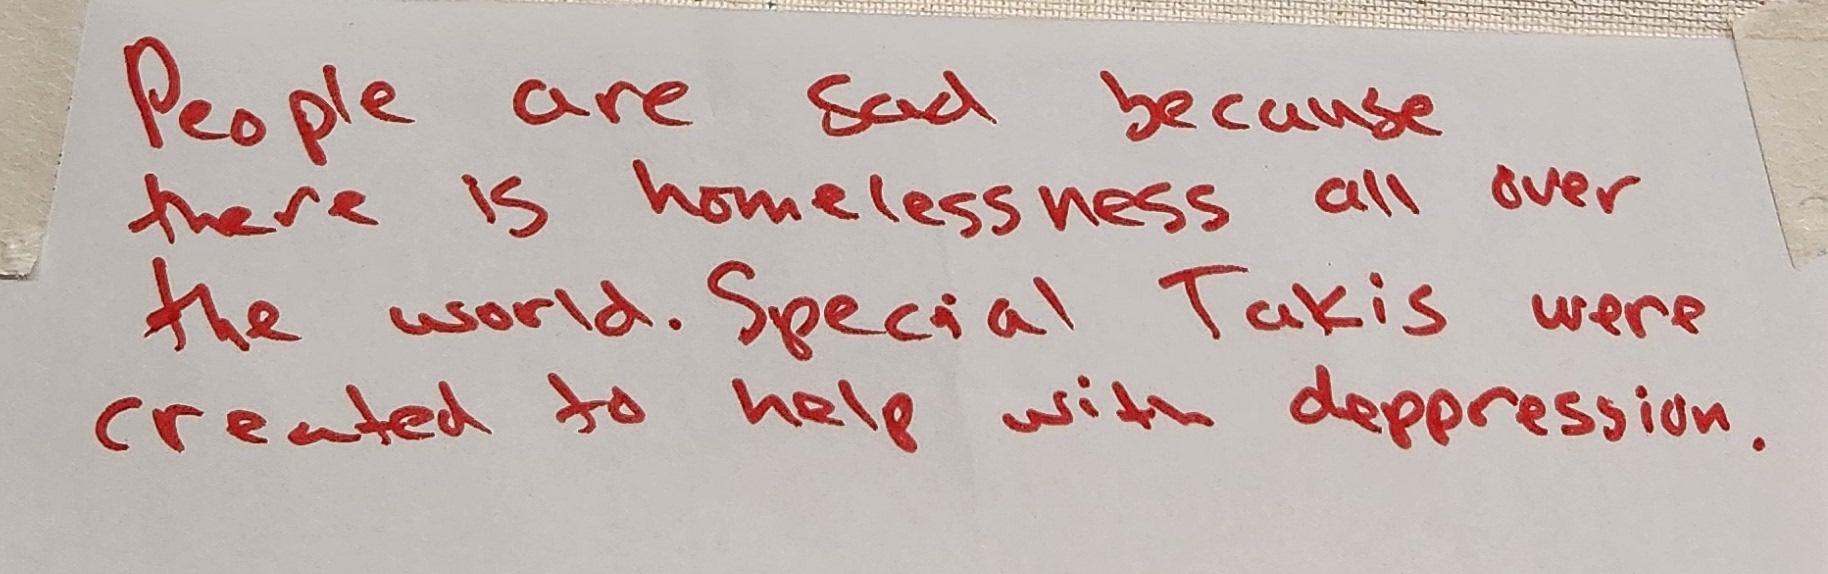 People are sad because
there is homelessness all over
the world. Special Takis were
created to help with deppression.